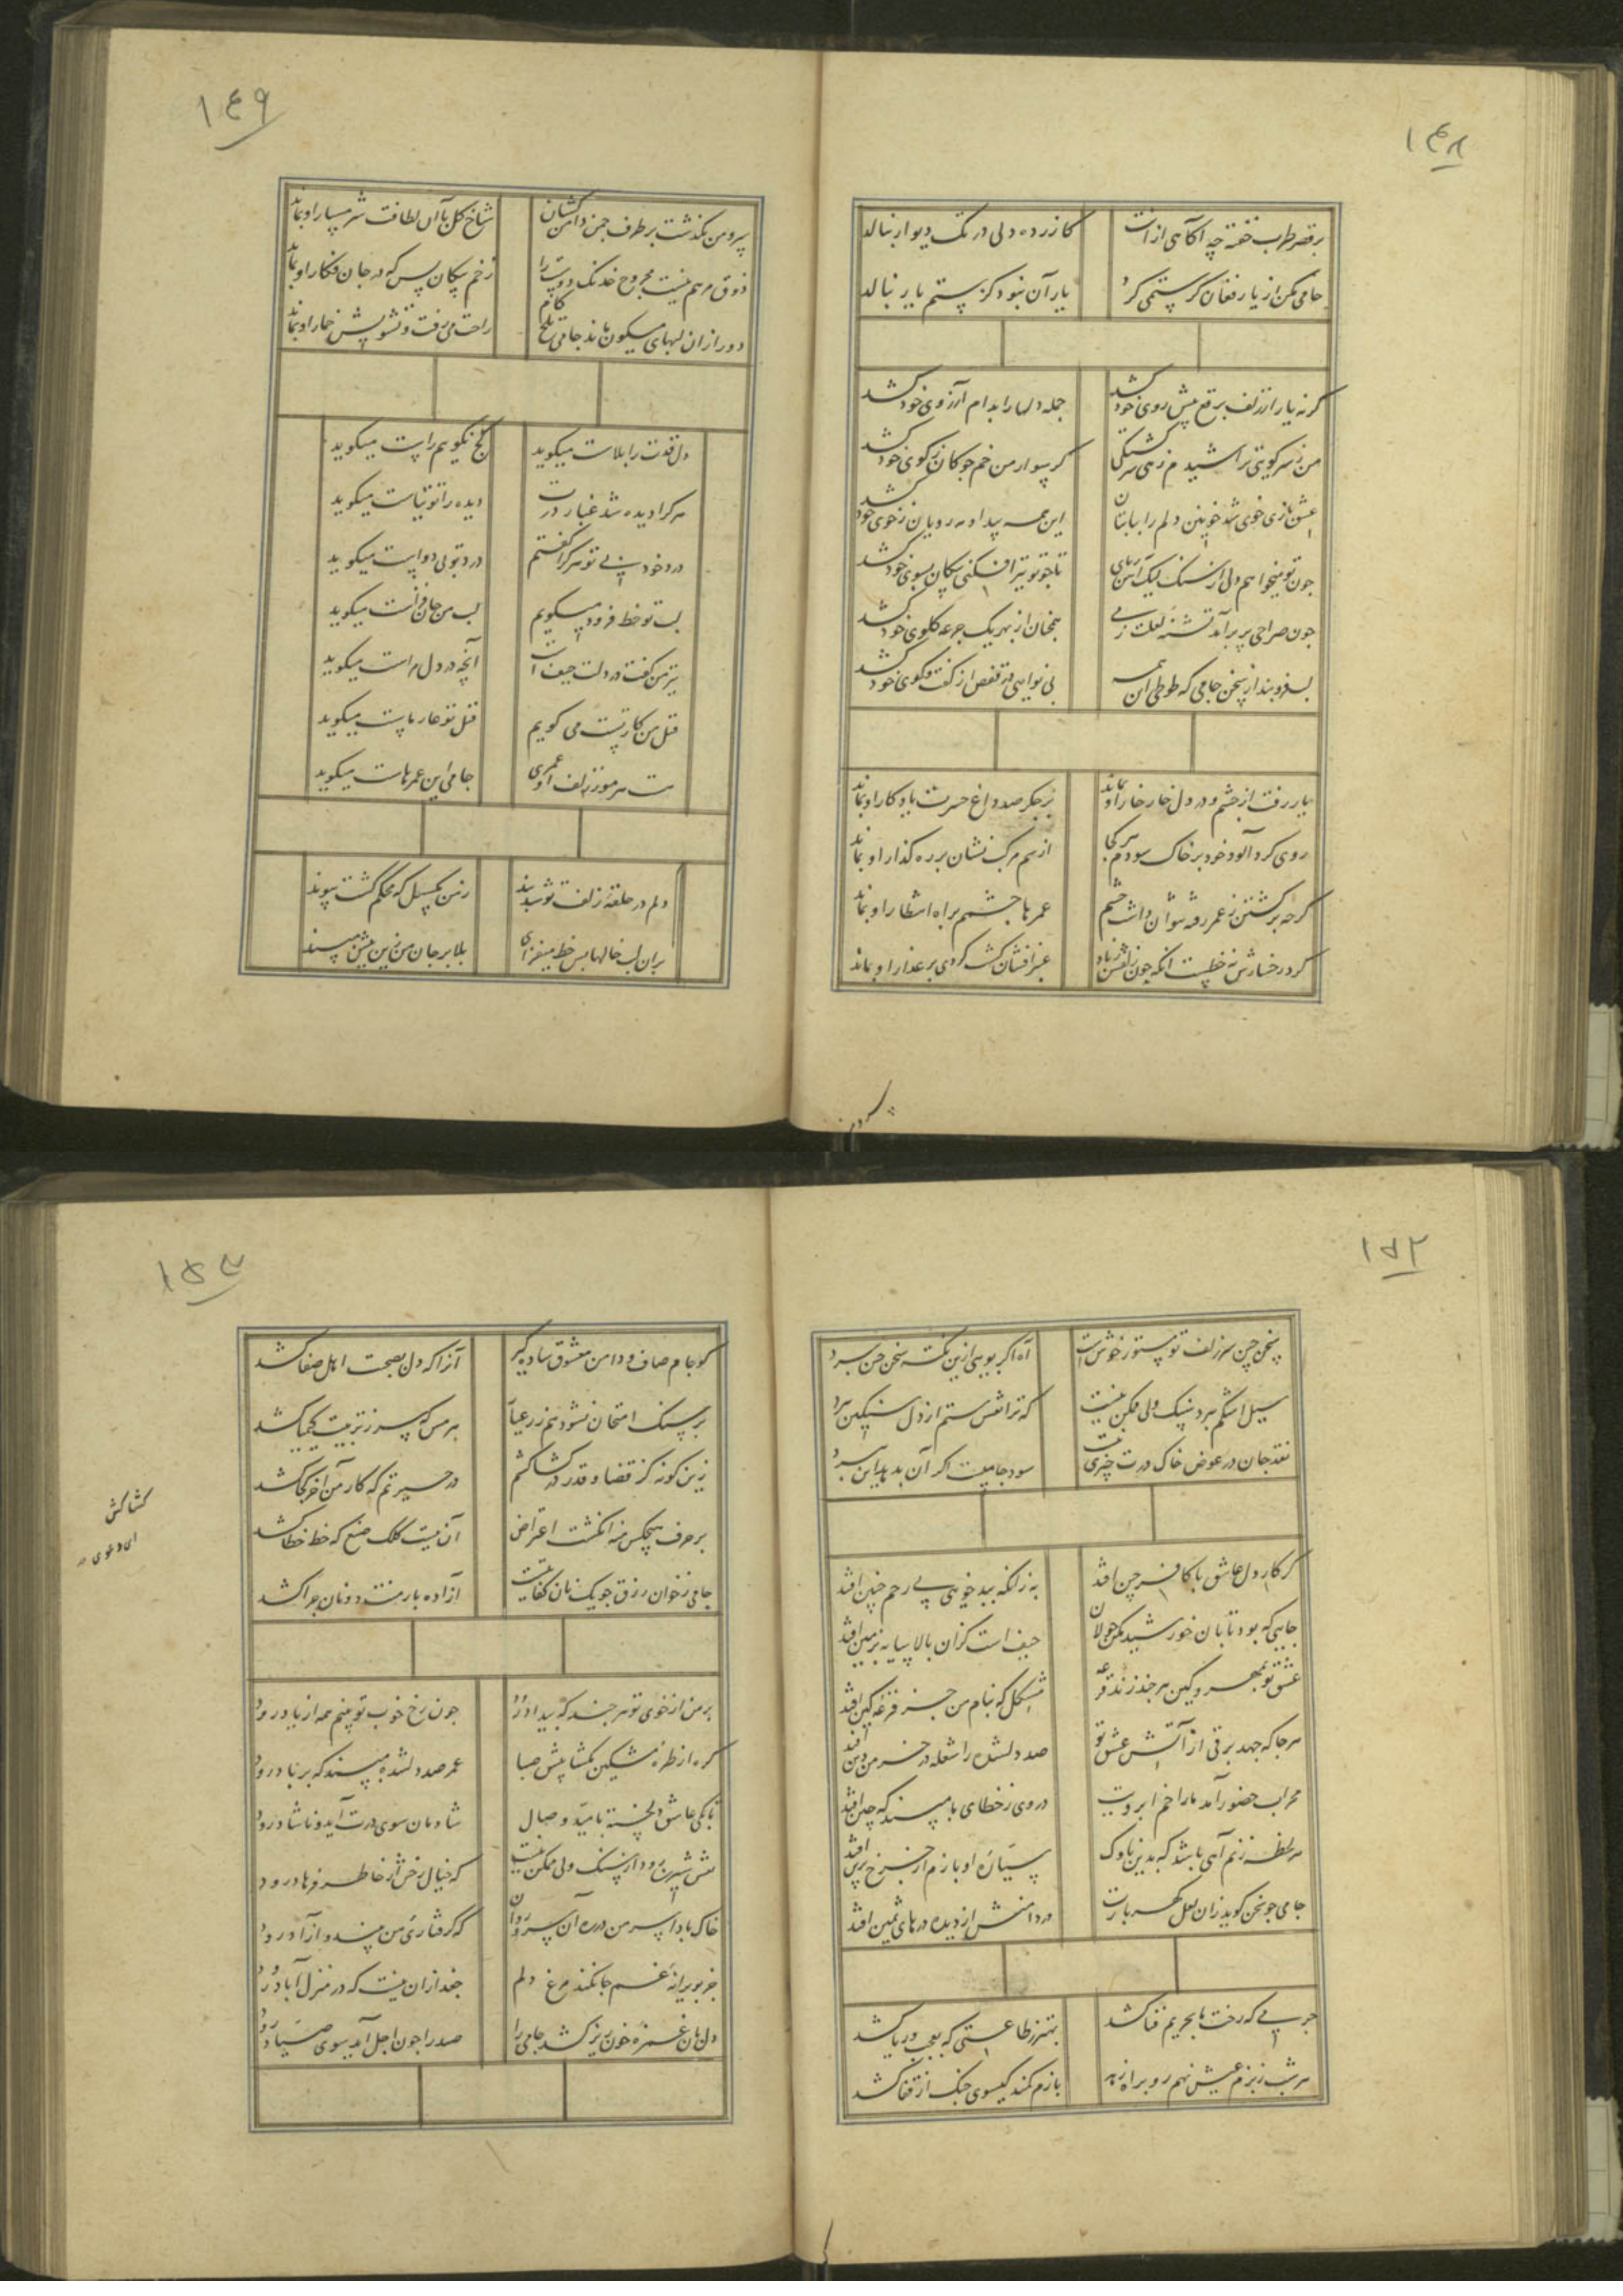 ۱۴۸
بر قصر طرب خفته چه آگاهی از آنت
کازرده دلی در تک دیوار بنالد
جامی مکن از یار فغان گر ستمی کرد
یار آن نبود کز ستم یار بنالد
گر نه یار از زلف برقع پیش روی خود کشد
جمله دلها را بدام آرزوی خود کشد
من ز سر کویش تراشیدم زهی سرگشتگی
گر سوار من خم چوکان ز کوی خود کشد
عشق بازی خوی شد خوبین دلم را با بتان
این همه بیداد مه رویان ز خوی خود کشد
چون تو میخواهم دلی از سنگ لیک آهن ربای
تا چو تو تیر افکنی پیکان بسوی خود کشد
چون صراحی پر برآمد تشنه لعلت ز می
همچنان از بهر یک جرعه گلوی خود کشد
لب فرو بند از سخن جامی که طوطی این همه
بی نوایی در قفص از گفت و گوی خود کشد
یار رفت از چشم و در دل خار خار او بماند
بر جگر صد داغ حسرت یادگار او بماند
روی گرد آلود خود بر خاک سودم هر کجا
از سم مرکب نشان بر ره گذار او بماند
گرچه برگشتن ز عمر رفته نتوان داشت چشم
عمرها چشمم براه انتظار او بماند
گرد رخسارش نه خطست آنکه چون زلفش ز باد
عنبر افشان گشت گردی بر عذار او بماند
۱۴۹
سرو من بگذشت بر طرف چمن دامن کشان
شاخ گل با آن لطافت شرمسار او بماند
ذوق مرهم نیست مجروح خدنگ دوست را
زخم پیکان بس که در جان فکار او بماند
دور از آن لبهای میگون ماند جامی تلخ کام
راحت می رفت و تشویش خمار او بماند
دل قدت را بلاست میگوید
کج نگویم راست میگوید
هر کرا دیده شد غبار درت
دیده را توتیاست میگوید
درد خود بی تو هر کرا گفتم
درد تو بی دواست میگوید
لب تو خط فزود میگویم
لب من جان فزاست میگوید
تیر من گفت در دلت حیف است
آنچه در دل مراست میگوید
قتل من کار تست می گویم
قتل تو عار ماست میگوید
هست سر موز زلف او عمری
جامی این عمرهاست میگوید
دلم در حلقه زلف تو شد بند
رسن بگسل که محکم گشت پیوند
بران لب خالها بس خط میفزای
بلا بر جان من زین بیش مپسند
۱۵۲
سخن چین سر زلف تو مستور خوش است
آه اگر بویی ازین نکته سخن چین ببرد
سیل اشکم ببرد سنگ ولی ممکن نیست
که ترا نقش ستم از دل سنگین ببرد
نقد جان در عوض خاک درت چیزی نیست
سود جامیست اگر آن بدهد این ببرد
گر کار دل عاشق با کافر چین افتد
به زانکه ببد خویی بی رحم چنین افتد
جایی که بود تابان خورشید مکن جولان
حیف است کزان بالا سایه بزمین افتد
عشق تو بمهر و کین هر چند زند قرعه
مشکل که بنام من جز قرعه کین افتد
هر جا که جهد برقی از آتش عشق تو
صد دلشده را شعله در خرمن دین افتد
محراب حضور آمد ما را خم ابرویت
در وی ز خطای ما مپسند که چین افتد
هر لحظه زنم آهی باشد که بدین ناوک
سیاره او بازم از چرخ برین افتد
جامی چو سخن گوید زان لعل گهر بارت
در دامنش از دیده درهای ثمین افتد
جرمی که رخت ما بحریم فنا کشد
بهتر ز طاعتی که بعجب و ریا کشد
هر شب ز بزم عیش نهم رو براه زهد
بازم کمند گیسوی چنگ از قفا کشد
۱۵۳
کو جام صاف و دامن معشوق ساده گیر
آنرا که دل بصحبت اهل صفا کشد
بر سنگ امتحان نشود هم زر عیار
هر مس که سر ز تربیت کیمیا کشد
زین گونه کز قضا و قدر در کشاکشم
در حیرتم که کار من آخر کجا کشد
بر حرف هیچکس منه انگشت اعتراض
آن نیست کلک صنع که خط خطا کشد
جامی ز خوان رزق چو یک نان کفایتست
آزاده بار منت دونان چرا کشد
کشاکش
ای دعوی
بر من از خوی تو هر چند که بیداد رود
چون رخ خوب تو بینم همه از یاد رود
گره از طره مشکین مگشا پیش صبا
عمر صد دلشده مپسند که بر باد رود
تا بکی عاشق دلخسته بامید وصال
شادمان سوی درت آید و ناشاد رود
نقش شیرین رود از سنگ ولی ممکن نیست
که خیال رخش از خاطر فرهاد رود
خاک بادا سر من در ره آن سرو روان
که گرفتاری من بیند و آزاد رود
جز بویرانه غم جا نکند مرغ دلم
جغد ازان نیست که در منزل آباد رود
دل بآن غمزه خون ریز کشد جامی را
صید را چون اجل آید سوی صیاد رود